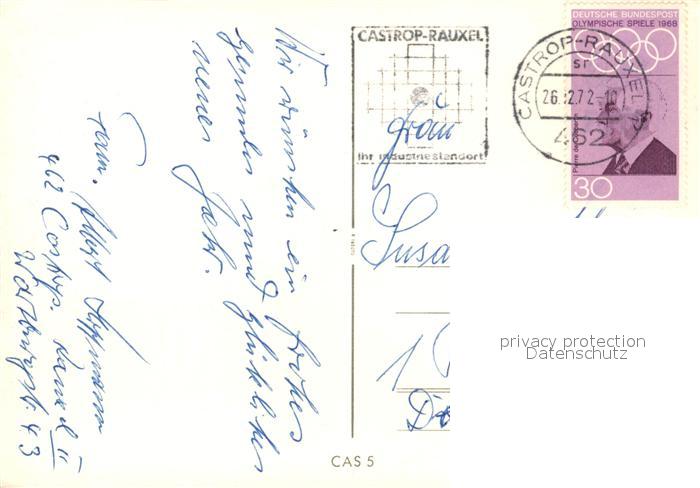 Wir wünschen ein frohes
gesundes und glückliches
neues Jahr.
Fam.
462 Castrop. Rauxel II
CASTROP-RAUXEL
Ihr Industriestandort
CASTROP-RAUXEL
26.12.72
462
DEUTSCHE BUNDESPOST
OLYMPISCHE SPIELE 1968
Pierre de Coubertin
30
Frau
Susa
1
privacy protection
Datenschutz
CAS 5